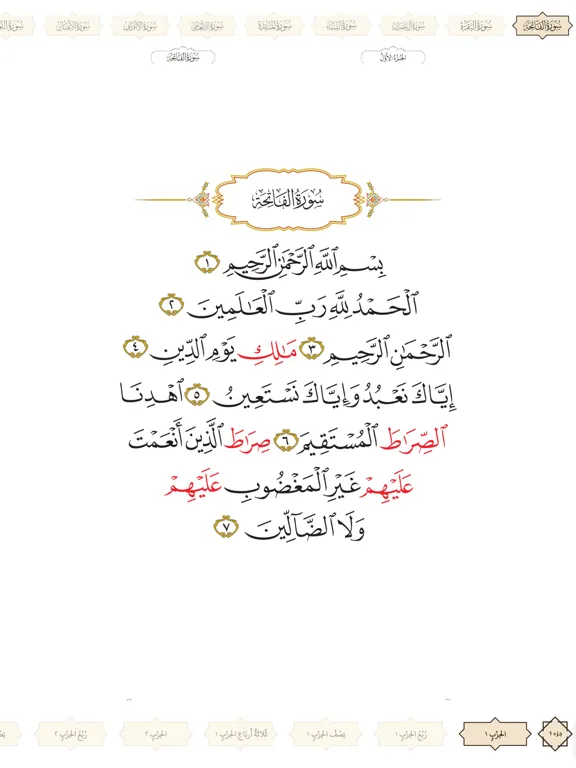 سُورَةُ الفَاتِحَة سُورَةُ البَقَرَة سُورَةُ آلِ عِمۡرَان سُورَةُ النِّسَاء سُورَةُ المَائـِدَة سُورَةُ الأَنۡعَام سُورَةُ الأَعۡرَاف سُورَةُ الأَنفَال
الجُزءُ الأَوَّلُ سُورَةُ الفَاتِحَة
سُورَةُ الفَاتِحَة
بِسۡمِ ٱللَّهِ ٱلرَّحۡمَٰنِ ٱلرَّحِيمِ ١
ٱلۡحَمۡدُ لِلَّهِ رَبِّ ٱلۡعَٰلَمِينَ ٢
ٱلرَّحۡمَٰنِ ٱلرَّحِيمِ ٣ مَٰلِكِ يَوۡمِ ٱلدِّينِ ٤
إِيَّاكَ نَعۡبُدُ وَإِيَّاكَ نَسۡتَعِينُ ٥ ٱهۡدِنَا
ٱلصِّرَٰطَ ٱلۡمُسۡتَقِيمَ ٦ صِرَٰطَ ٱلَّذِينَ أَنۡعَمۡتَ
عَلَيۡهِمۡ غَيۡرِ ٱلۡمَغۡضُوبِ عَلَيۡهِمۡ
وَلَا ٱلضَّآلِّينَ ٧
الحِزۡب ١ رُبۡعُ الحِزۡب ١ نِصۡفُ الحِزۡب ١ ثَلَاثَةُ أَرۡبَاعِ الحِزۡب ١ الحِزۡب ٢ رُبۡعُ الحِزۡب ٢